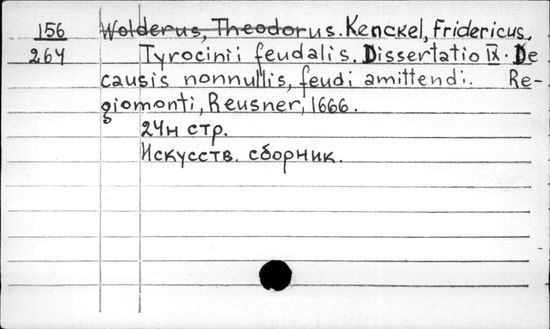 156 Wolderus, Theodorus. Kenckel, Fridericus.
264 Tyrocinii feudalis. Dissertatio IX. De
causis nonnullis, feudi amittendi. Re-
giomonti, Reusner, 1666.
24н стр.
Искусств. сборник.